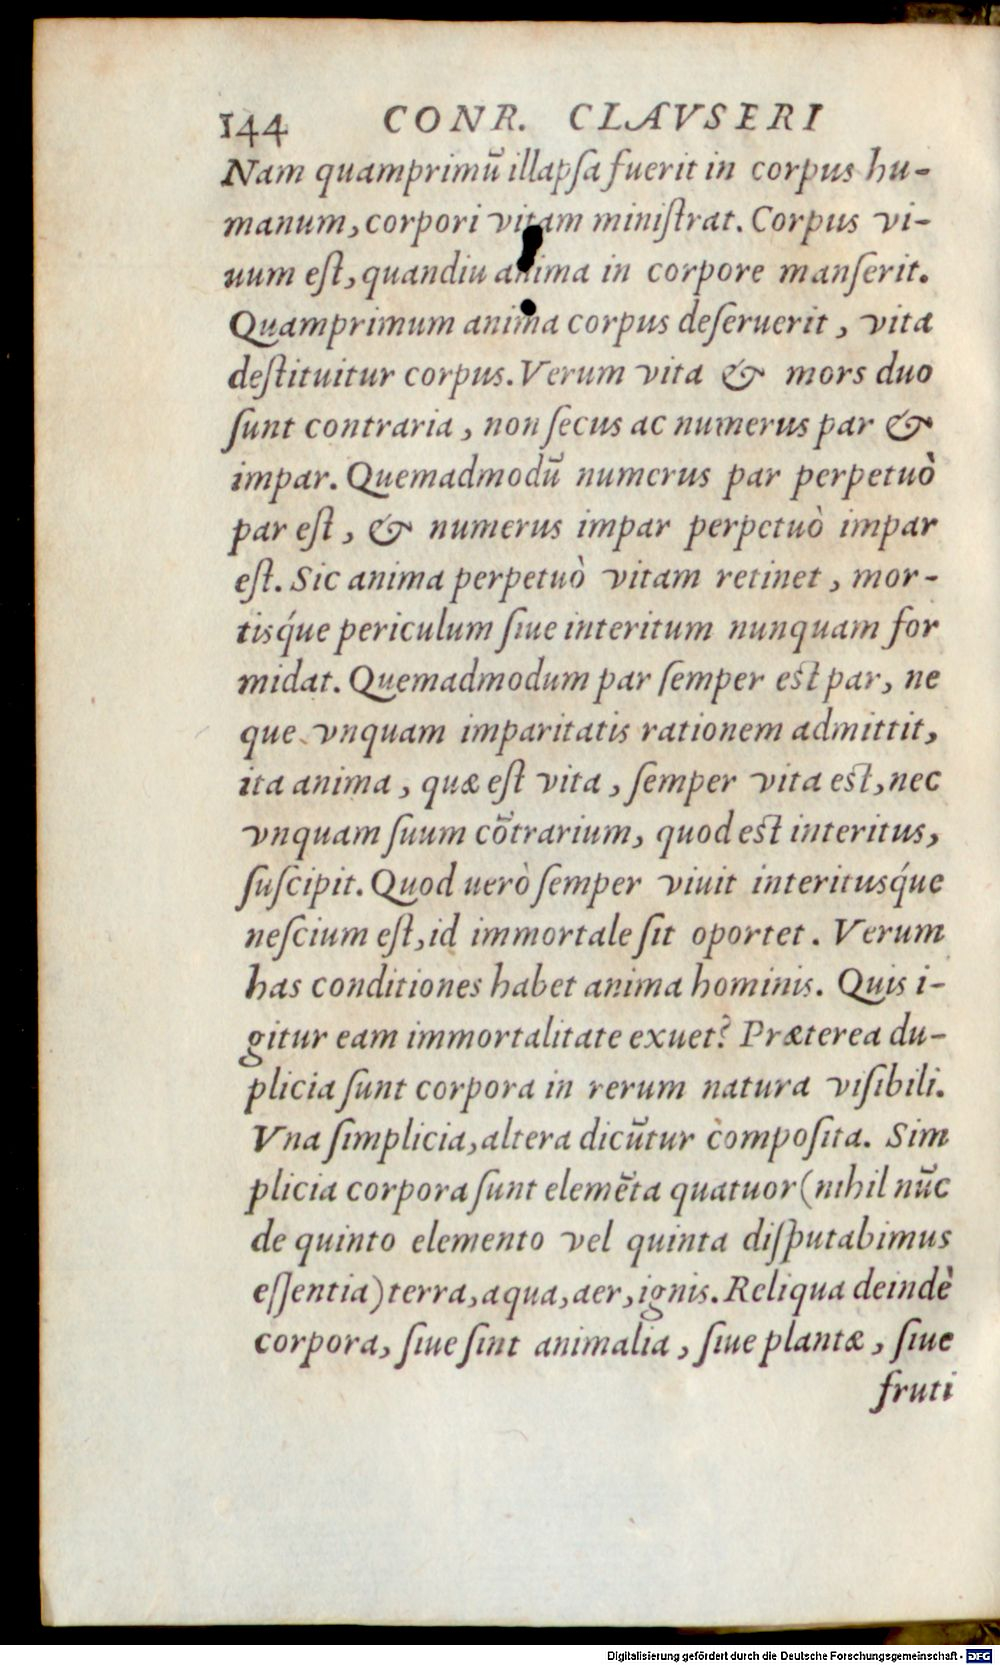 144 CONR. CLAVSERI
Nam quamprimū illapſa fuerit in corpus hu-
manum, corpori vitam miniſtrat. Corpus vi-
uum eſt, quandiu anima in corpore manſerit.
Quamprimum anima corpus deſeruerit, vita
deſtituitur corpus. Verum vita & mors duo
ſunt contraria, non ſecus ac numerus par &
impar. Quemadmodū numerus par perpetuò
par eſt, & numerus impar perpetuò impar
eſt. Sic anima perpetuò vitam retinet, mor-
tisq́ue periculum ſiue interitum nunquam for
midat. Quemadmodum par ſemper est par, ne
que vnquam imparitatis rationem admittit,
ita anima, quæ eſt vita, ſemper vita est, nec
vnquam ſuum cōtrarium, quod est interitus,
ſuſcipit. Quod uerò ſemper viuit interitusq́ue
neſcium eſt, id immortale ſit oportet. Verum
has conditiones habet anima hominis. Quis i-
gitur eam immortalitate exuet? Præterea du-
plicia ſunt corpora in rerum natura viſibili.
Vna ſimplicia, altera dicūtur còmpoſita. Sim
plicia corpora ſunt elemēta quatuor (nihil nūc
de quinto elemento vel quinta diſputabimus
eſſentia) terra, aqua, aer, ignis. Reliqua deindè
corpora, ſiue ſint animalia, ſiue plantæ, ſiue
fruti
Digitalisierung gefördert durch die Deutsche Forschungsgemeinschaft - DFG